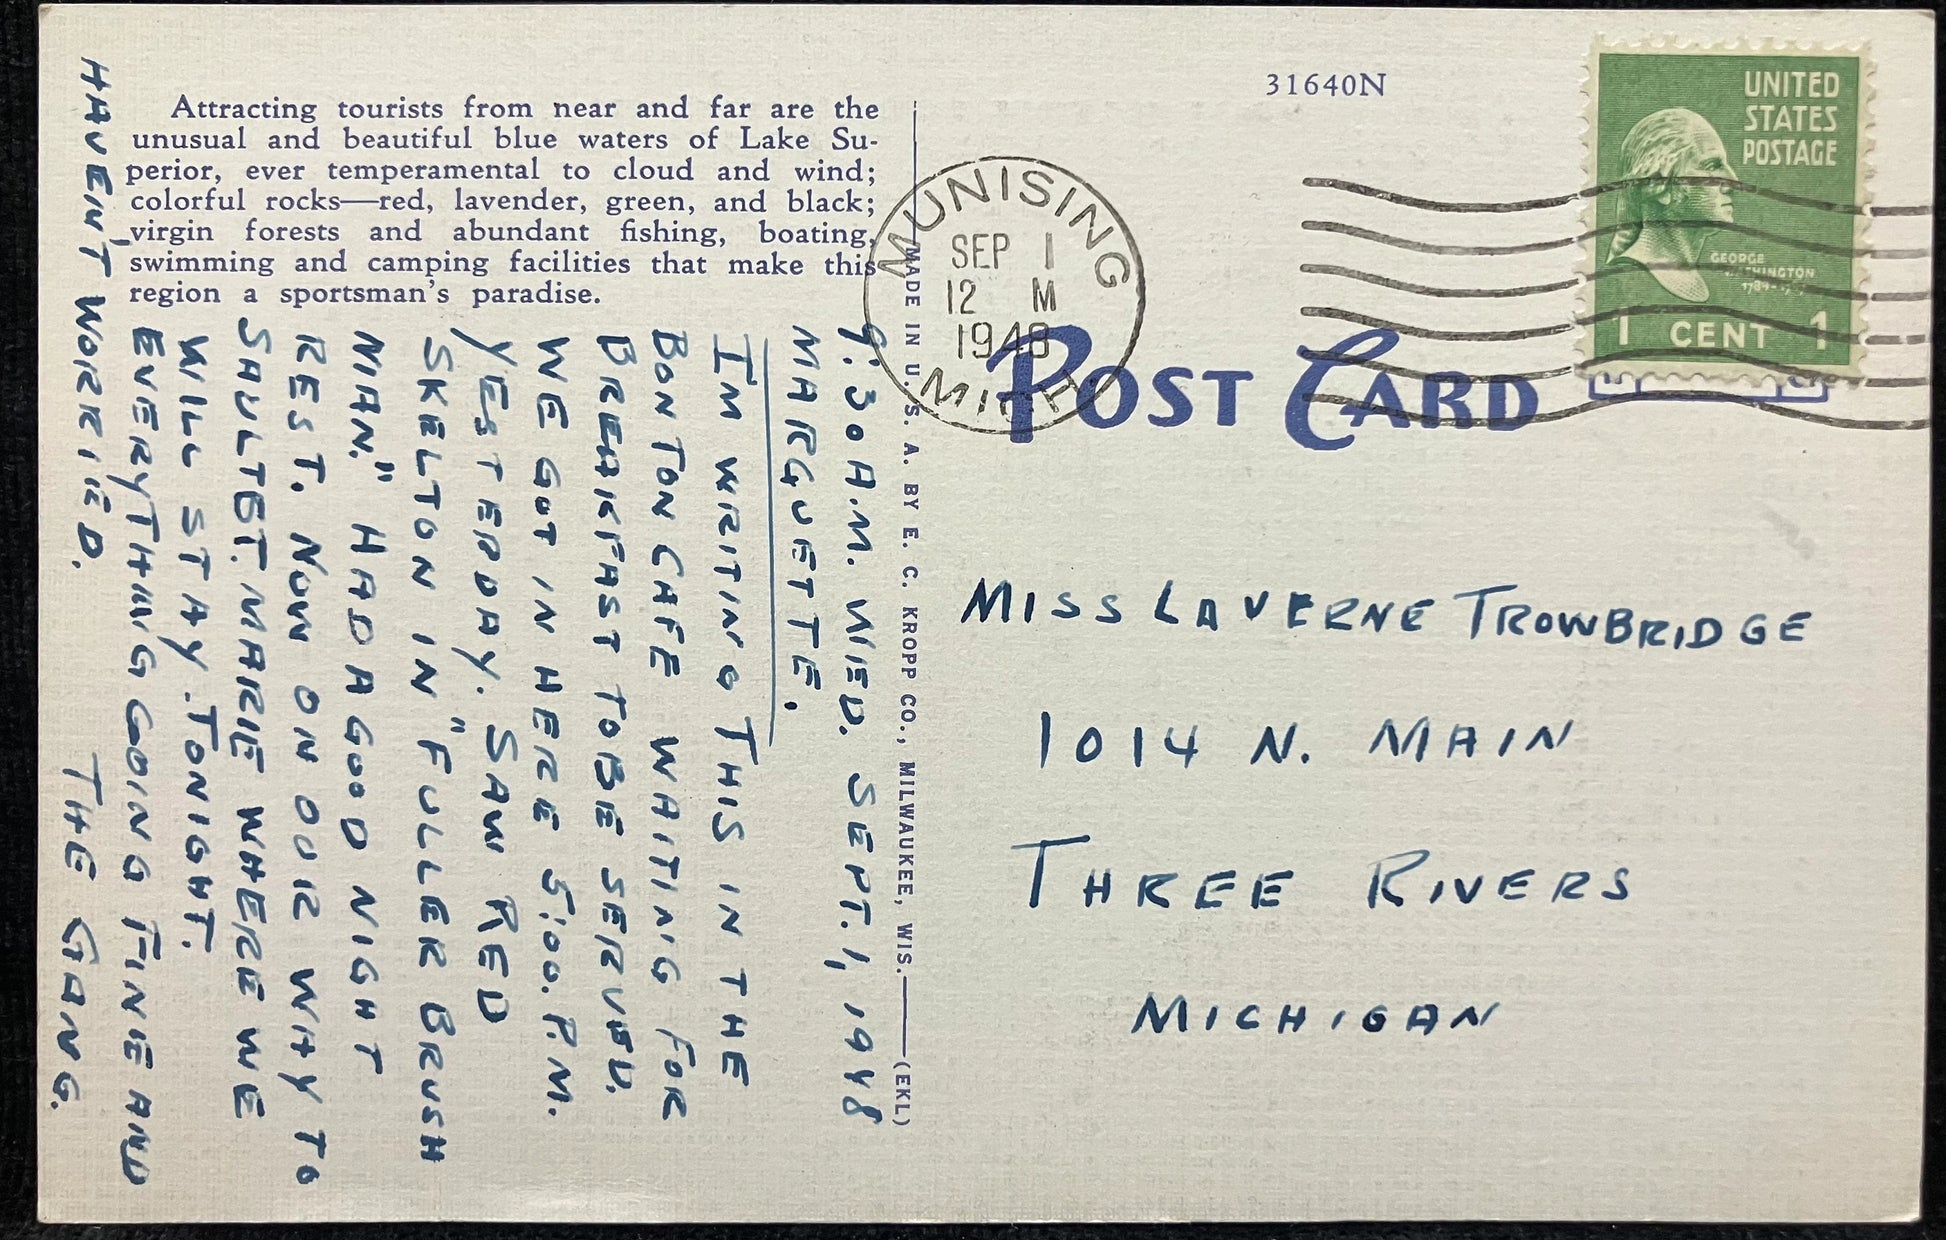 Attracting tourists from near and far are the
unusual and beautiful blue waters of Lake Su-
perior, ever temperamental to cloud and wind;
colorful rocks—red, lavender, green, and black;
virgin forests and abundant fishing, boating,
swimming and camping facilities that make this
region a sportsman's paradise.
9:30 A.M. WED. SEPT. 1, 1948
MARQUETTE.
I'M WRITING THIS IN THE
BONTON CAFE WAITING FOR
BREAKFAST TO BE SERVED.
WE GOT IN HERE 5:00. P.M.
YESTERDAY. SAW RED
SKELTON IN "FULLER BRUSH
MAN." HAD A GOOD NIGHT
REST. NOW ON OUR WAY TO
SAULT ST. MARIE WHERE WE
WILL STAY TONIGHT.
EVERYTHING GOING FINE AND
HAVEN'T WORRIED.
THE GANG.
MADE IN U. S. A. BY E. C. KROPP CO., MILWAUKEE, WIS.——(EKL)
31640N
MUNISING
SEP 1
12 M
1948
MICH
POST CARD
UNITED
STATES
POSTAGE
GEORGE
WASHINGTON
1 CENT 1
MISS LAVERNE TROWBRIDGE
1014 N. MAIN
THREE RIVERS
MICHIGAN